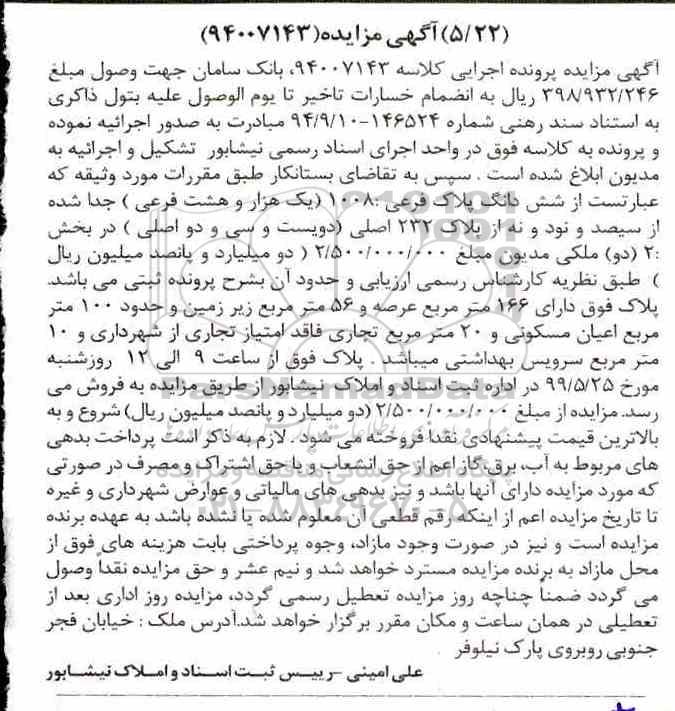 (۵/۲۲) آگهی مزایده (۹۴۰۰۷۱۴۳)
آگهی مزایده پرونده اجرایی کلاسه ۹۴۰۰۷۱۴۳، بانک سامان جهت وصول مبلغ
۳۹۸/۹۳۲/۲۴۶ ریال به انضمام خسارات تاخیر تا یوم الوصول علیه بتول ذاکری
به استناد سند رهنی شماره ۱۴۶۵۲۴-۹۴/۹/۱۰ مبادرت به صدور اجرائیه نموده
و پرونده به کلاسه فوق در واحد اجرای اسناد رسمی نیشابور تشکیل و اجرائیه به
مدیون ابلاغ شده است . سپس به تقاضای بستانکار طبق مقررات مورد وثیقه که
عبارتست از شش دانگ پلاک فرعی :۱۰۰۸ (یک هزار و هشت فرعی ) جدا شده
از سیصد و نود و نه از پلاک ۲۳۲ اصلی (دویست و سی و دو اصلی ) در بخش
:۲ (دو) ملکی مدیون مبلغ ۲/۵۰۰/۰۰۰/۰۰۰ ( دو میلیارد و پانصد میلیون ریال
) طبق نظریه کارشناس رسمی ارزیابی و حدود آن بشرح پرونده ثبتی می باشد.
پلاک فوق دارای ۱۶۶ متر مربع عرصه و ۵۶ متر مربع زیر زمین و حدود ۱۰۰ متر
مربع اعیان مسکونی و ۲۰ متر مربع تجاری فاقد امتیاز تجاری از شهرداری و ۱۰
متر مربع سرویس بهداشتی میباشد . پلاک فوق از ساعت ۹ الی ۱۲ روزشنبه
مورخ ۹۹/۵/۲۵ در اداره ثبت اسناد و املاک نیشابور از طریق مزایده به فروش می
رسد. مزایده از مبلغ ۲/۵۰۰/۰۰۰/۰۰۰ (دو میلیارد و پانصد میلیون ریال) شروع و به
بالاترین قیمت پیشنهادی نقدا فروخته می شود . لازم به ذکر است پرداخت بدهی
های مربوط به آب، برق،گاز اعم از حق انشعاب و یا حق اشتراک و مصرف در صورتی
که مورد مزایده دارای آنها باشد و نیز بدهی های مالیاتی و عوارض شهرداری و غیره
تا تاریخ مزایده اعم از اینکه رقم قطعی آن معلوم شده یا نشده باشد به عهده برنده
مزایده است و نیز در صورت وجود مازاد، وجوه پرداختی بابت هزینه های فوق از
محل مازاد به برنده مزایده مسترد خواهد شد و نیم عشر و حق مزایده نقداً وصول
می گردد ضمناً چناچه روز مزایده تعطیل رسمی گردد، مزایده روز اداری بعد از
تعطیلی در همان ساعت و مکان مقرر برگزار خواهد شد.آدرس ملک : خیابان فجر
جنوبی روبروی پارک نیلوفر
علی امینی -رییس ثبت اسناد و املاک نیشابور
ParsNamadData
۰۲۱-۸۸۳۴۹۶۷۰-۵